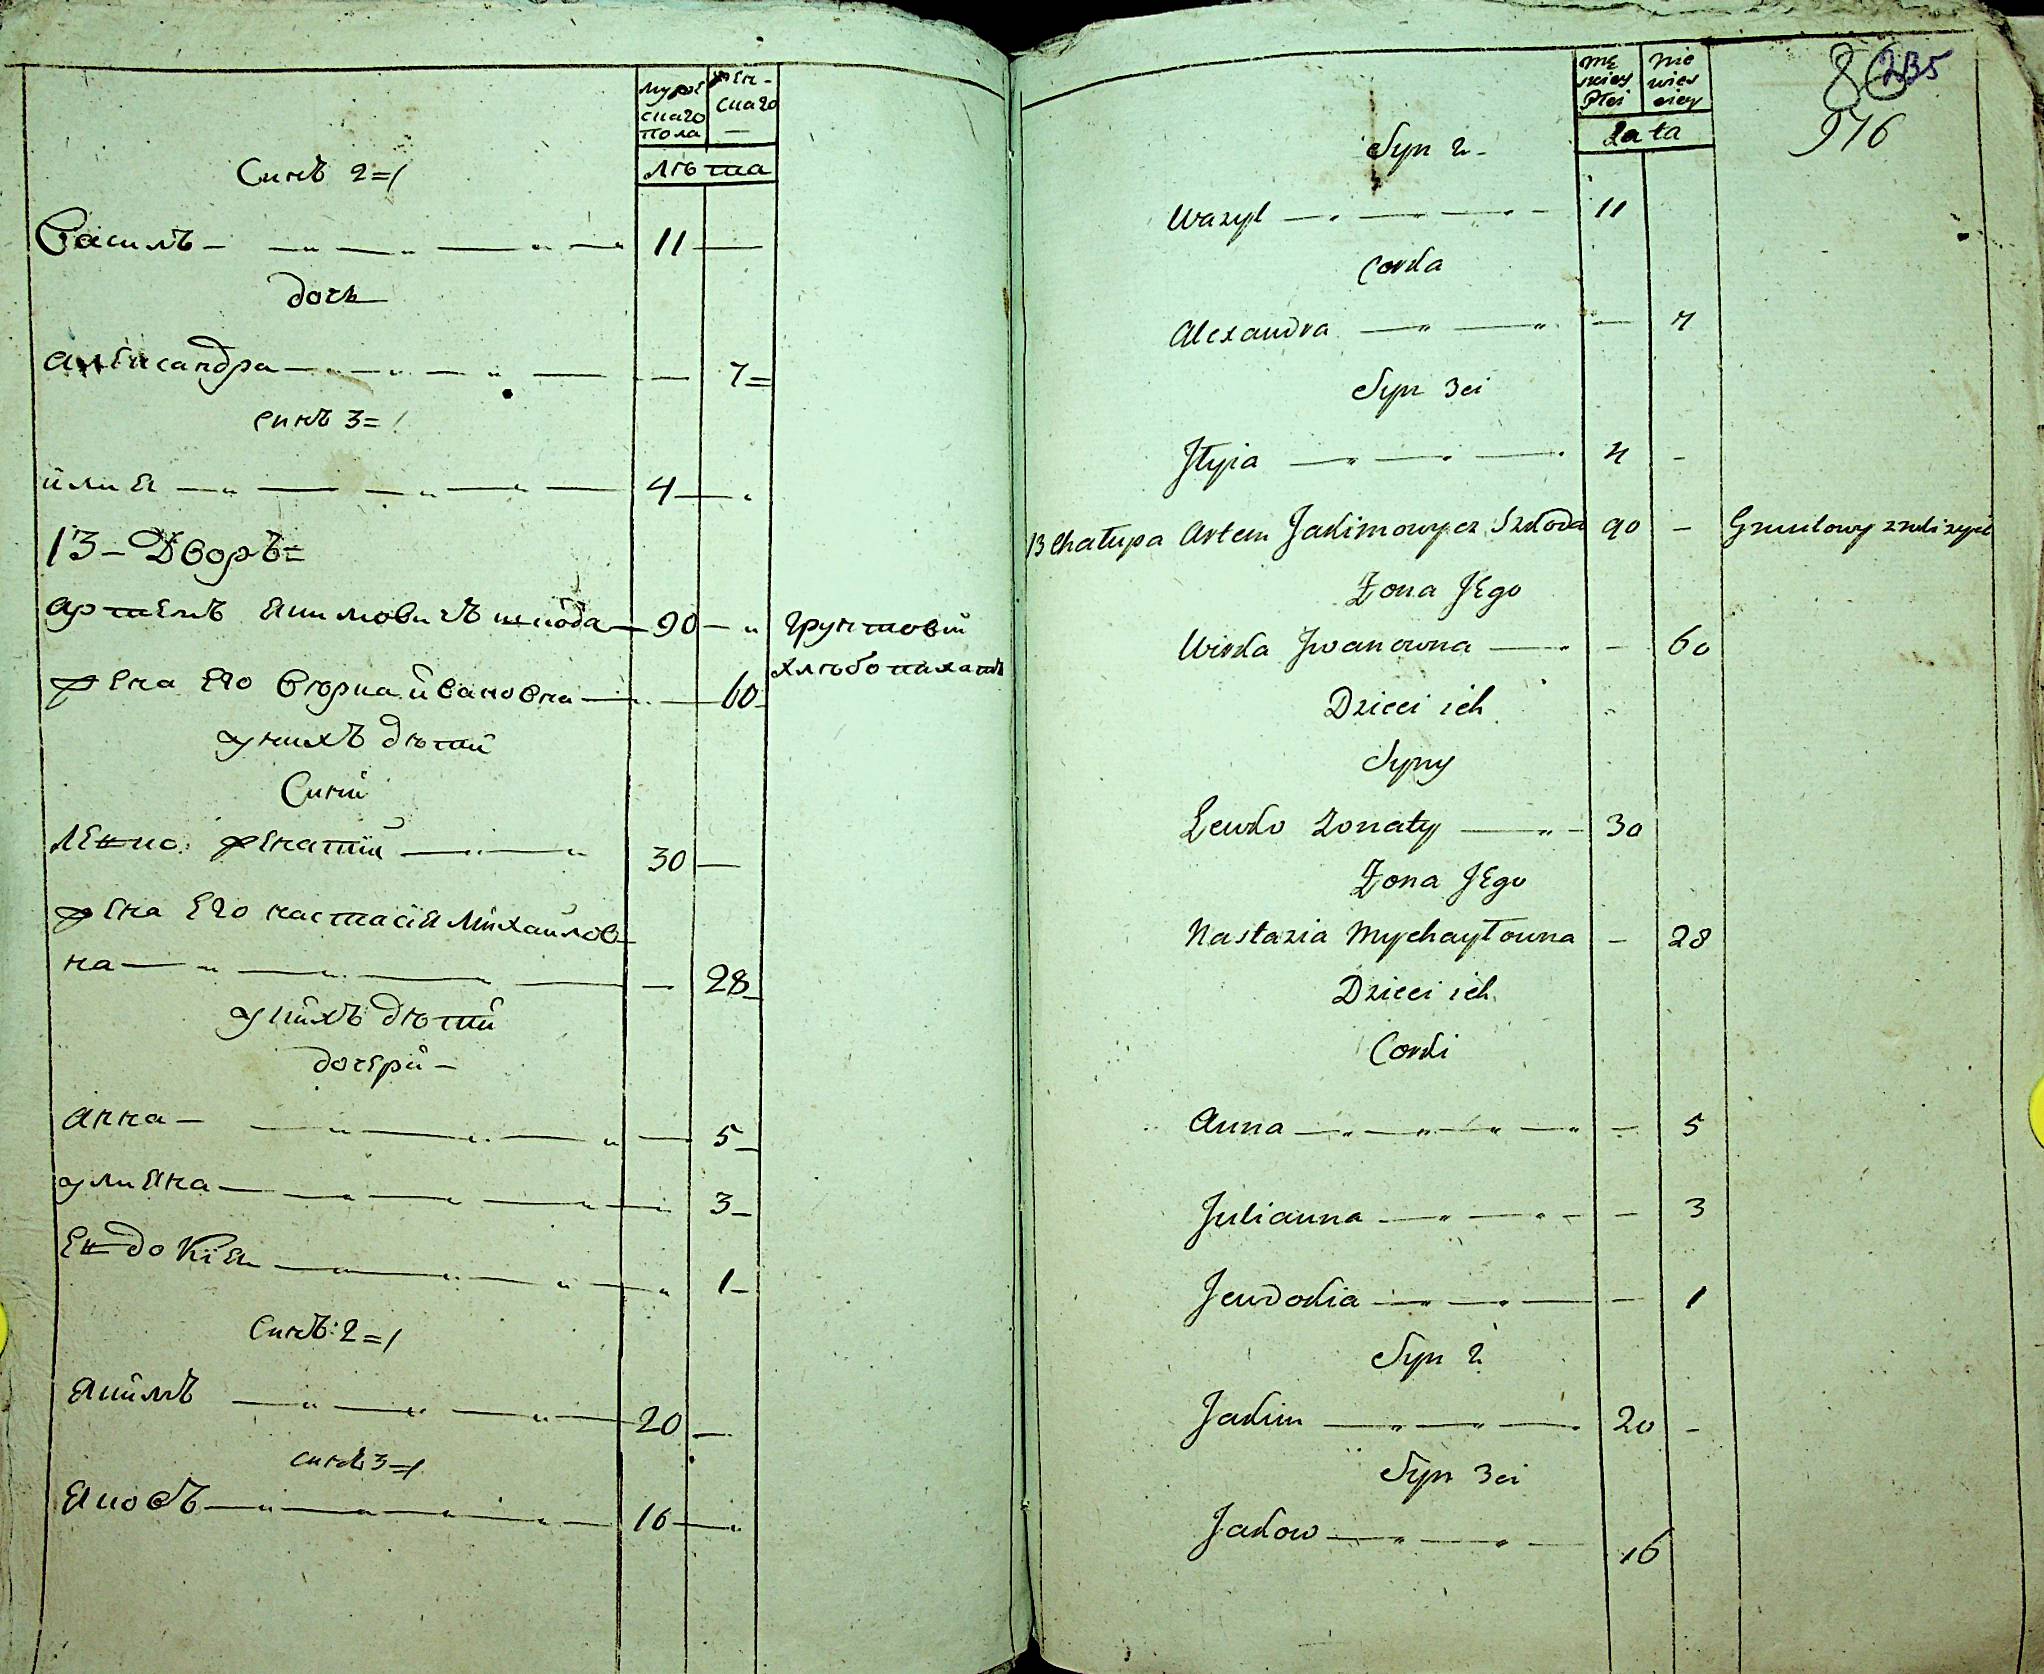 мужескаго пола
женскаго
лѣта
Синъ 2=/
Василь 11
дочь
александра 7=
синъ 3=/
илия 4
13 - Дворъ=
артемъ якимовичъ шкода 90 грунтовій
хлѣбопахатъ
жена Его вѣрка ивановна 60
у нихъ дѣти
Сини
левко женатій 30
жена Его настасія михайлов
на 28
у нихъ дѣти
дочери
анна 5
улияна 3
Евдокія 1
Синъ: 2=/
якимъ 20
синъ 3=/
яковъ 16
męskiey płci
niewiesciey
Lata
86
235
976
Syn 2
Wazyl 11
Corka
Alexandra 7
Syn 3ci
Jłyia 4
13 Chałupa Artem Jakimowycz Szkoda 90 Gruntowy
Żona JEgo
Wirka Jwanowna 60
Dzieci ich
Syny
Lewko żonaty 30
Żona JEgo
Nastazia Mychayłowna 28
Dzieci ich
Corki
Anna 5
Julianna 3
Jewdokia 1
Syn 2
Jakim 20
Syn 3ci
Jakow 16